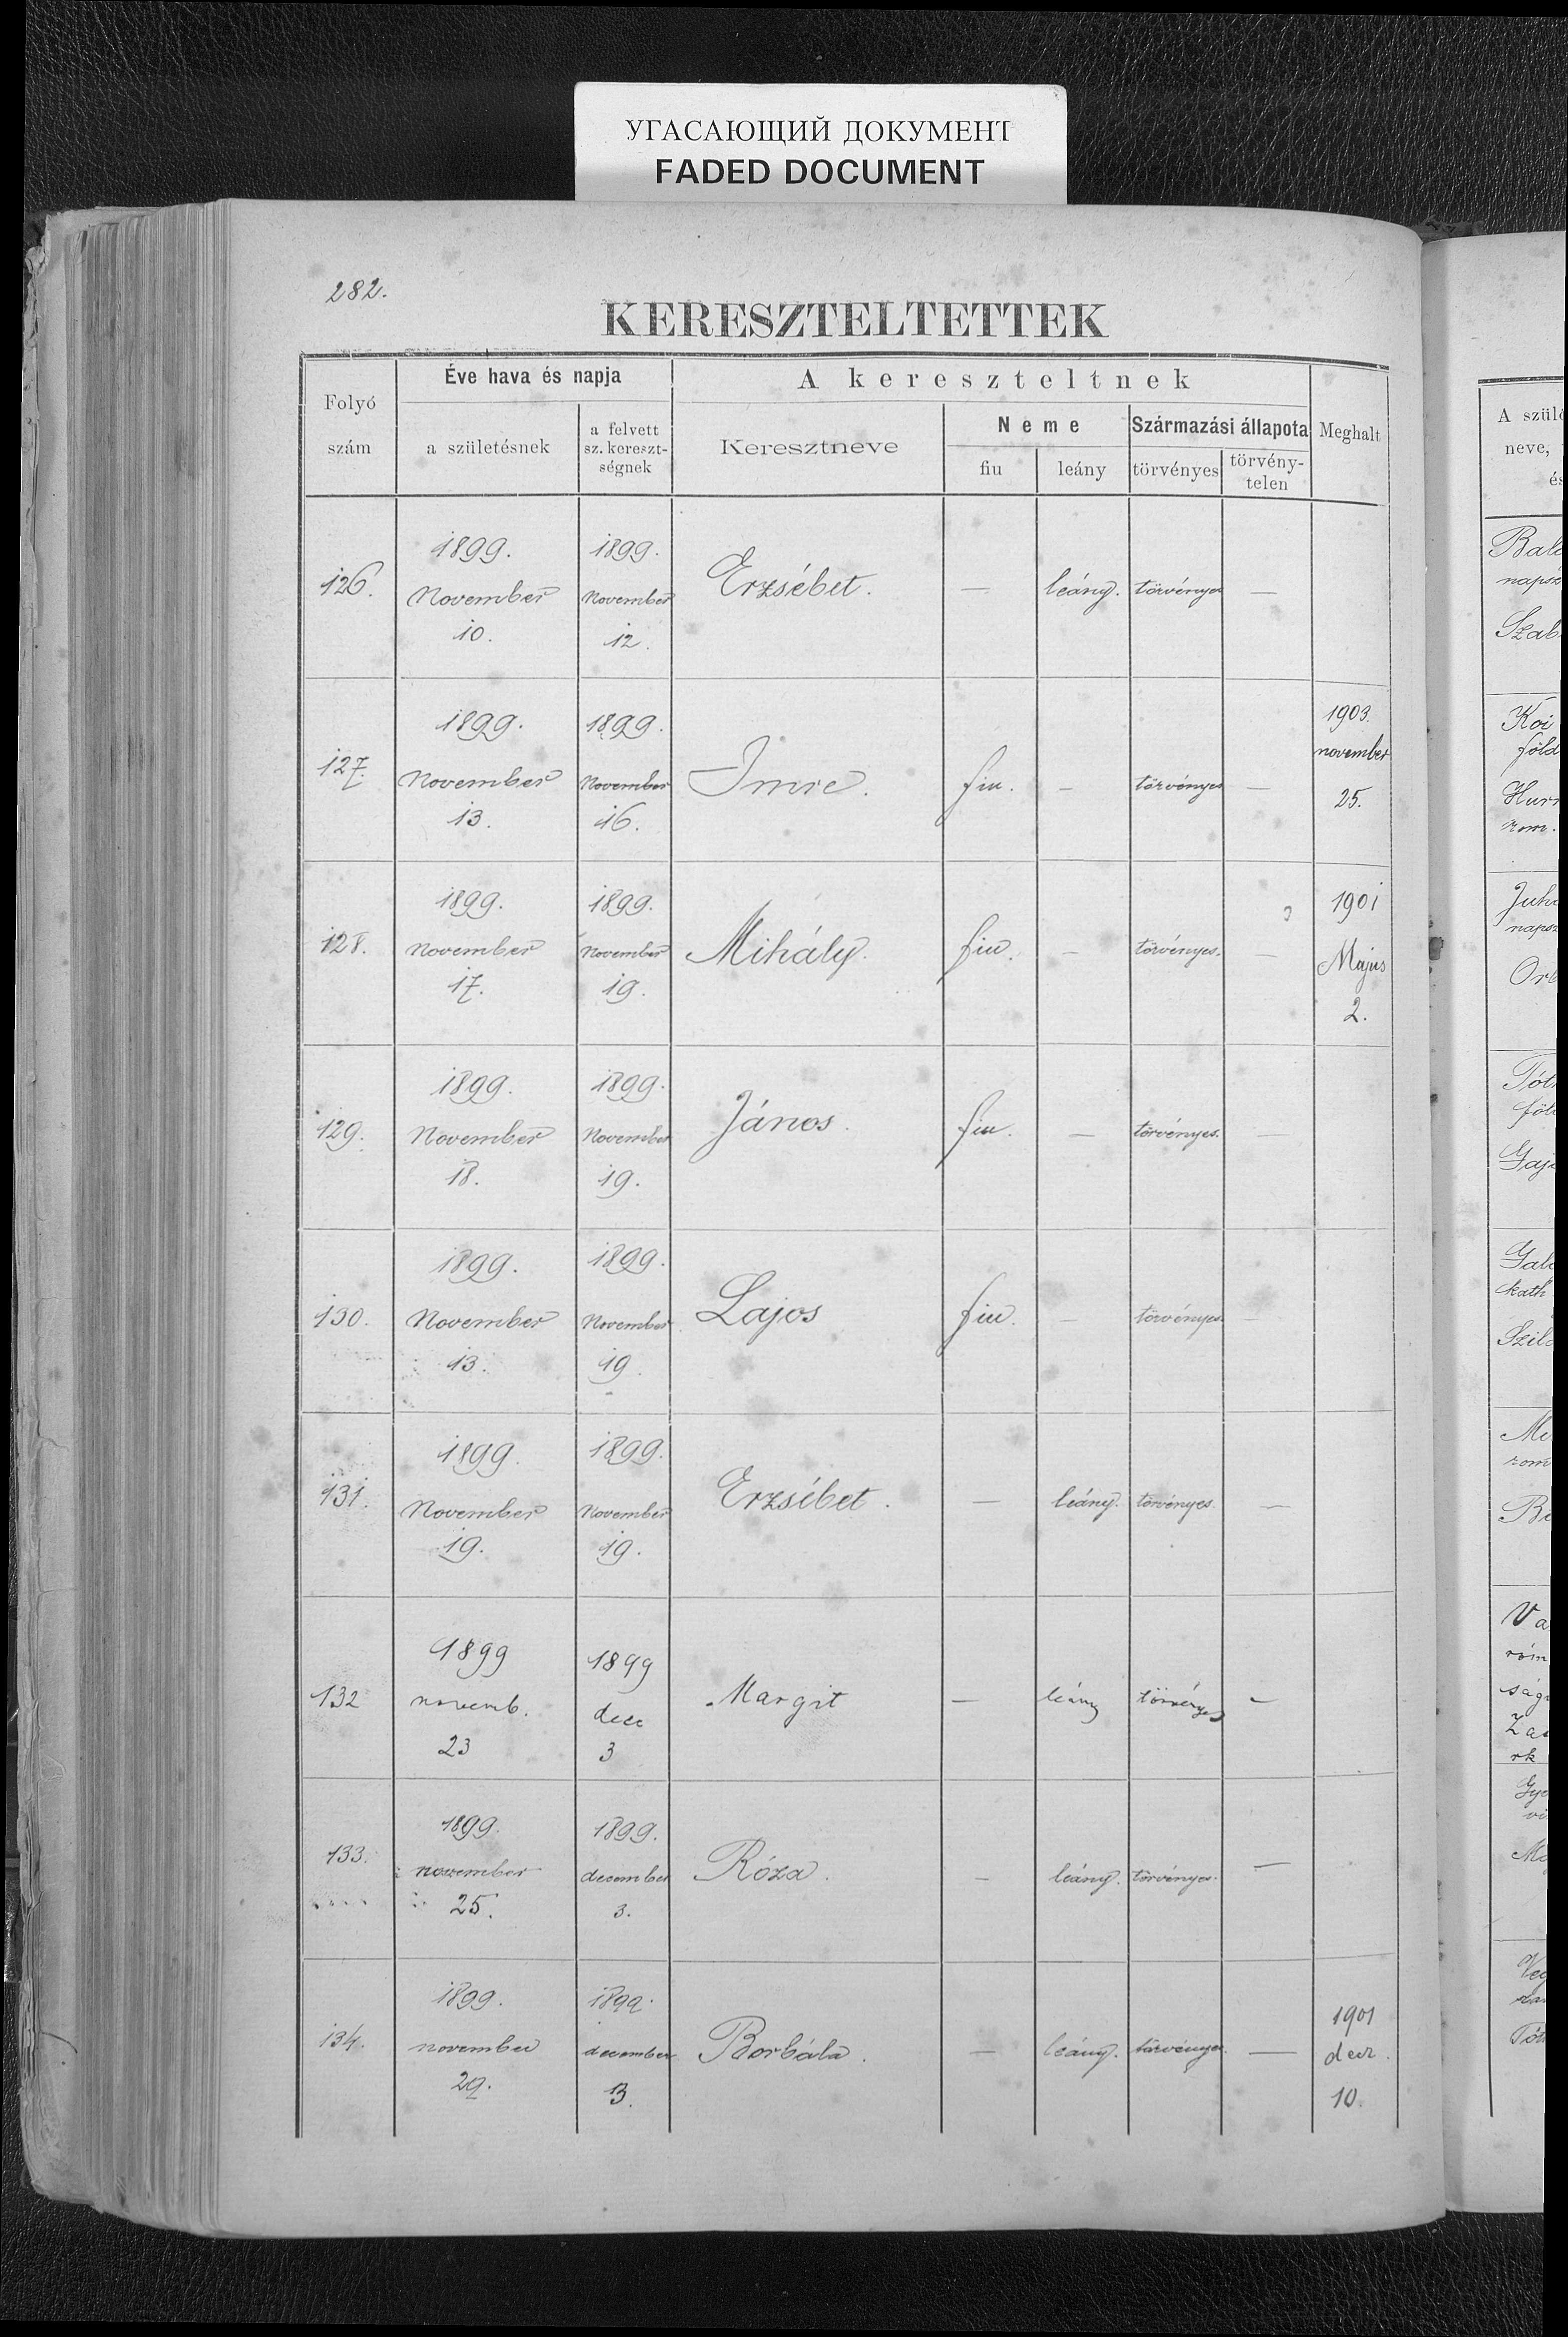 УГАСАЮЩИЙ ДОКУМЕНТ
FADED DOCUMENT
282.
KERESZTELTETTEK
Folyó szám
Éve hava és napja
a születésnek
a felvett sz. kereszt-ségnek
A kereszteltnek
Keresztneve
Neme
fiu
leány
Származási állapota
törvényes
törvény-telen
Meghalt
126. 1899. November 10. 1899. November 12. Erzsébet. — leány. törvényes —
127. 1899. November 13. 1899. November 16. Imre. fiu. — törvényes — 1903. november 25.
128. 1899. November 17. 1899. November 19. Mihály. fiu. — törvényes. — 1901 Majus 2.
129. 1899. November 18. 1899. November 19. János. fiu. — törvényes. —
130. 1899. November 13. 1899. November 19. Lajos fiu. — törvényes —
131. 1899. November 19. 1899. November 19. Erzsébet. — leány. törvényes. —
132 1899 novemb. 23 1899 dec 3 Margit — leány törvényes —
133. 1899. november 25. 1899. december 3. Róza. — leány. törvényes. —
134. 1899. november 29. 1899. december 3. Borbála. — leány. törvényes. — 1901 decz. 10.
A szül
neve,
és